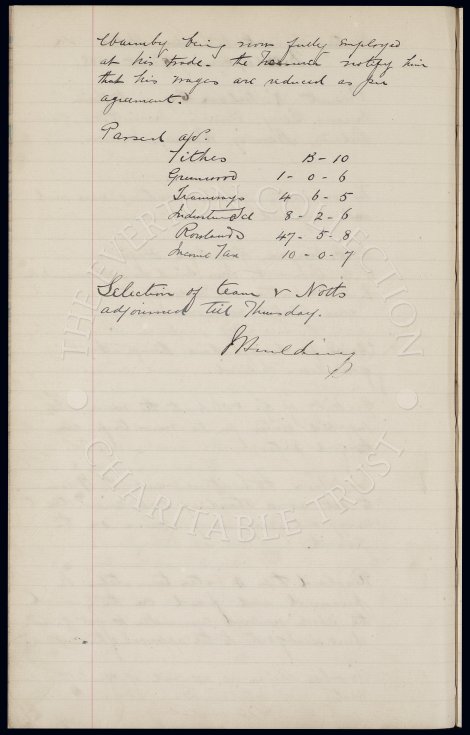 Warmby being now fully employed
at his trade. the Treasurer notify him
that his wages are reduced as per
agreement.
Passed a/cs.
Tithes 13 - 10
Greenwood 1 - 0 - 6
Tramways 4 6 - 5
8 - 2 - 6
Rowlands 47 - 5 - 8
Income Tax 10 - 0 - 7
Selection of team v Notts
adjourned till Thursday.
J Houlding
THE EVERTON COLLECTION
CHARITABLE TRUST